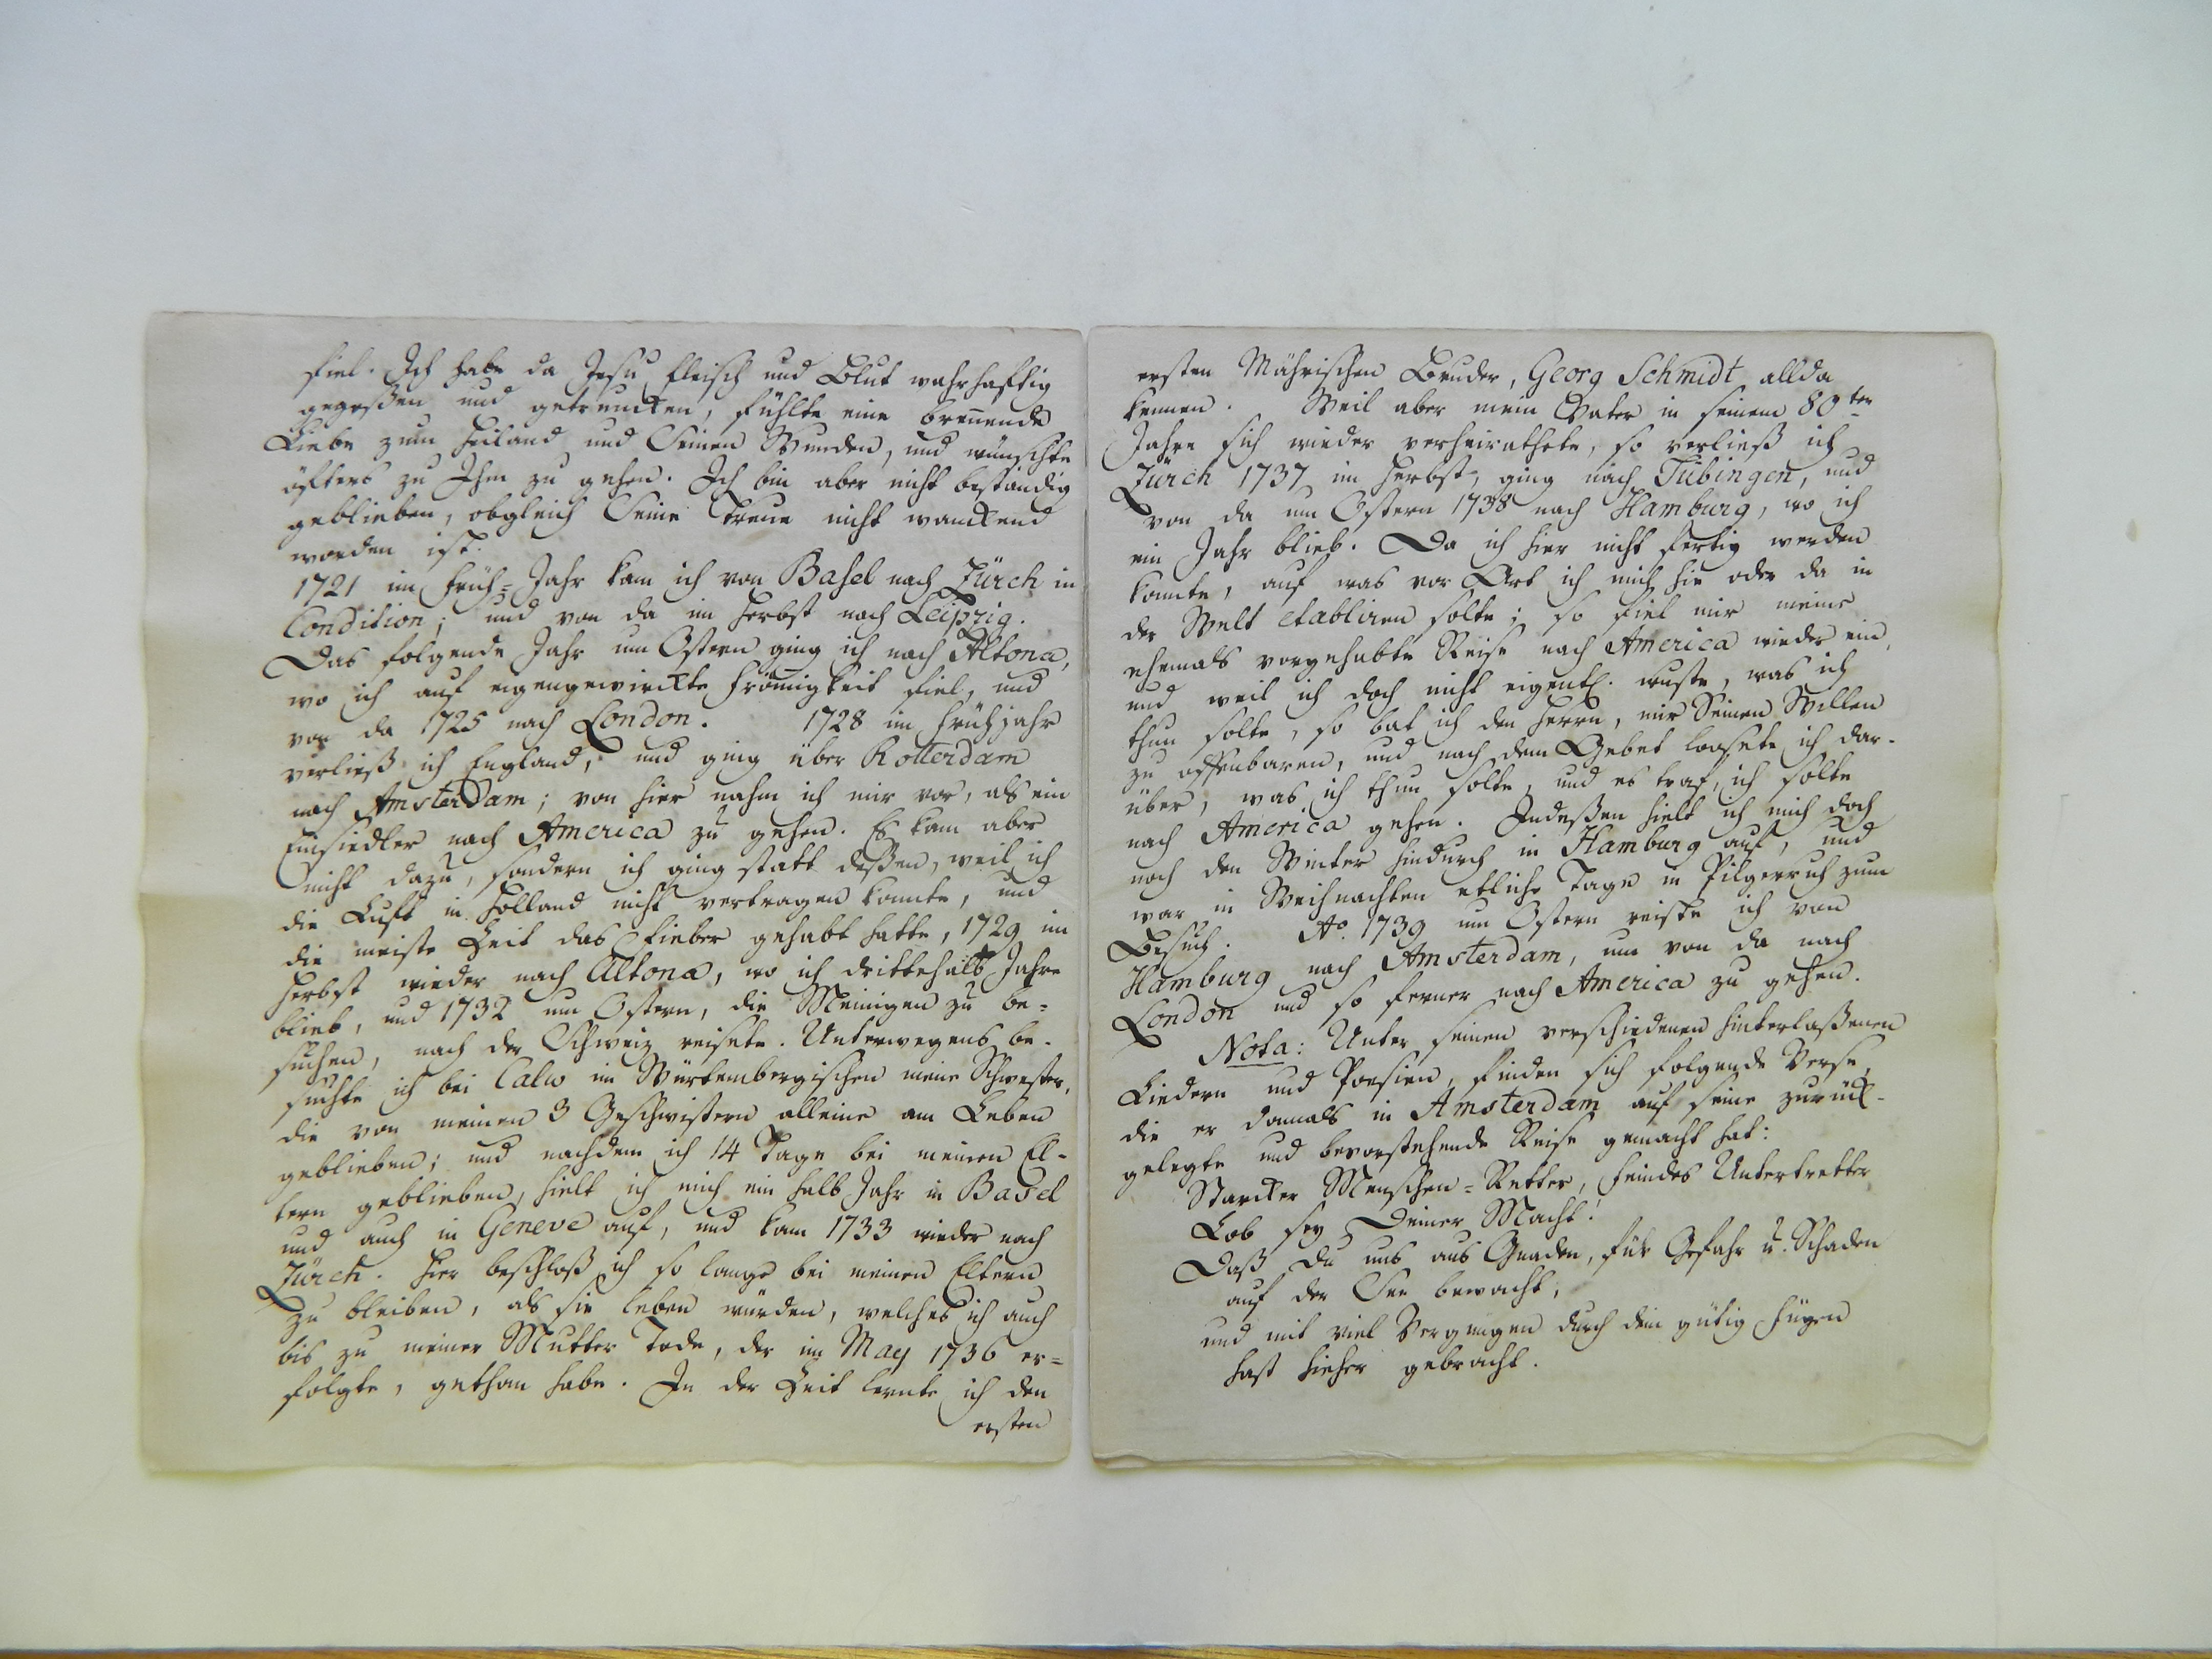 fiel. Ich habe da Jesu Fleisch und Blut wahrhaftig
gegeßen und getruncken, fühlte eine breñende
Liebe zum Heiland und Seinen Wunden, und wünschte
öfters zu Ihm zu gehen. Ich bin aber nicht beständig
geblieben, obgleich Seine Treue nicht wanckend
worden ist.
1721 im Früh-Jahr kam ich von Basel nach Zürch in
Condition; und von da im Herbst nach Leipzig.
Das folgende Jahr um Ostern ging ich nach Altona,
wo ich auf eigengewirckte Fröm̃igkeit fiel, und
von da 1725 nach London. 1728 im Frühjahr
verließ ich England, und ging über Rotterdam
nach Amsterdam; von hier nahm ich mir vor, als ein
Einsiedler nach America zu gehen. Es kam aber
nicht dazu, sondern ich ging statt deßen, weil ich
die Luft in Holland nicht vertragen konte, und
die meiste Zeit das Fieber gehabt hatte, 1729 im
Herbst wieder nach Altona, wo ich drittehalb Jahre
blieb, und 1732 um Ostern, die Meinigen zu be-
suchen, nach der Schweiz reisete. Unterwegens be-
suchte ich bei Calw im Würtembergischen meine Schwester,
die von meinen 3 Geschwistern alleine am Leben
geblieben; und nachdem ich 14 Tage bei meinen El-
tern geblieben, hielt ich mich ein halb Jahr in Basel
und auch in Geneve auf, und kam 1733 wieder nach
Zürch. Hier beschloß ich so lange bei meinen Eltern
zu bleiben, als sie leben würden, welches ich auch
bis zu meiner Mutter Tode, der im May 1736 er-
folgte, gethan habe. In der Zeit lernte ich den
ersten
ersten Mährischen Bruder, Georg Schmidt allda
kennen. Weil aber mein Vater in seinem 80ten
Jahre sich wieder verheirathete, so verließ ich
Zürch 1737 im Herbst, ging nach Tübingen, und
von da um Ostern 1738 nach Hamburg, wo ich
ein Jahr blieb. Da ich hier nicht fertig werden
konte, auf was vor Art ich mich hie oder da in
der Welt etabliren solte; so fiel mir meine
ehemals vorgehabte Reise nach America wieder ein,
und weil ich doch nicht eigentl. wuste, was ich
thun solte, so bat ich den Herrn, mir Seinen Willen
zu offenbaren, und nach dem Gebet loosete ich dar-
über, was ich thun solte, und es traf, ich solte
nach America gehen. Indeßen hielt ich mich doch
noch den Winter hindurch in Hamburg auf, und
war in Weihnachten etliche Tage in Pilgerruh zum
Besuch. Ao. 1739 um Ostern reiste ich von
Hamburg nach Amsterdam, um von da nach
London und so ferner nach America zu gehen.
Nota: Unter seinen verschiedenen hinterlaßenen
Liedern und Poesien, finden sich folgende Verse,
die er damals in Amsterdam auf seine zurück-
gelegte und bevorstehende Reise gemacht hat:
Starcker Menschen-Retter, Feindes Untertretter
Lob sey Deiner Macht!
Daß Du uns aus Gnaden, für Gefahr u. Schaden
auf der See bewacht,
und mit viel Vergnügen durch dein gütig Fügen
hast hieher gebracht.